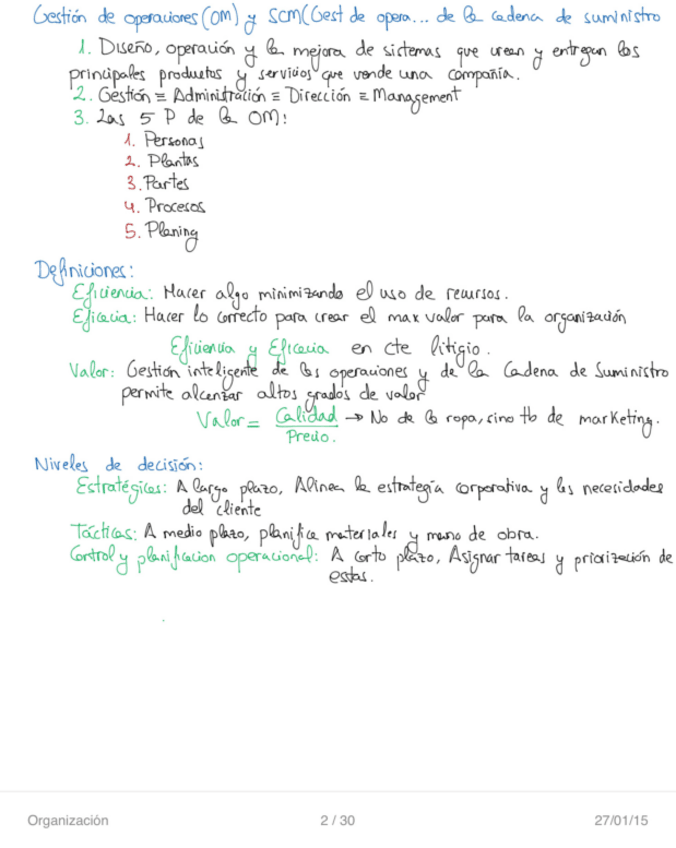 Gestión de operaciones (OM) y SCM (Gest de opera... de la cadena de suministro
1. Diseño, operación y la mejora de sistemas que crean y entregan los
principales productos y servicios que vende una compañía.
2. Gestión ≡ Administración ≡ Dirección ≡ Management
3. Las 5 P de la OM:
1. Personas
2. Plantas
3. Partes
4. Procesos
5. Planing
Definiciones:
Eficiencia: Hacer algo minimizando el uso de recursos.
Eficacia: Hacer lo correcto para crear el max valor para la organización
Eficiencia y Eficacia en cte litigio.
Valor: Gestión inteligente de las operaciones y de la Cadena de Suministro
permite alcanzar altos grados de valor
Valor = Calidad → No de la ropa, sino tb de marketing.
Precio.
Niveles de decisión:
Estratégicas: A largo plazo, Alinea la estrategia corporativa y las necesidades
del cliente
Tácticas: A medio plazo, planifica materiales y mano de obra.
Control y planificación operacional: A corto plazo, Asignar tareas y priorización de
estas.
Organización 2 / 30 27/01/15